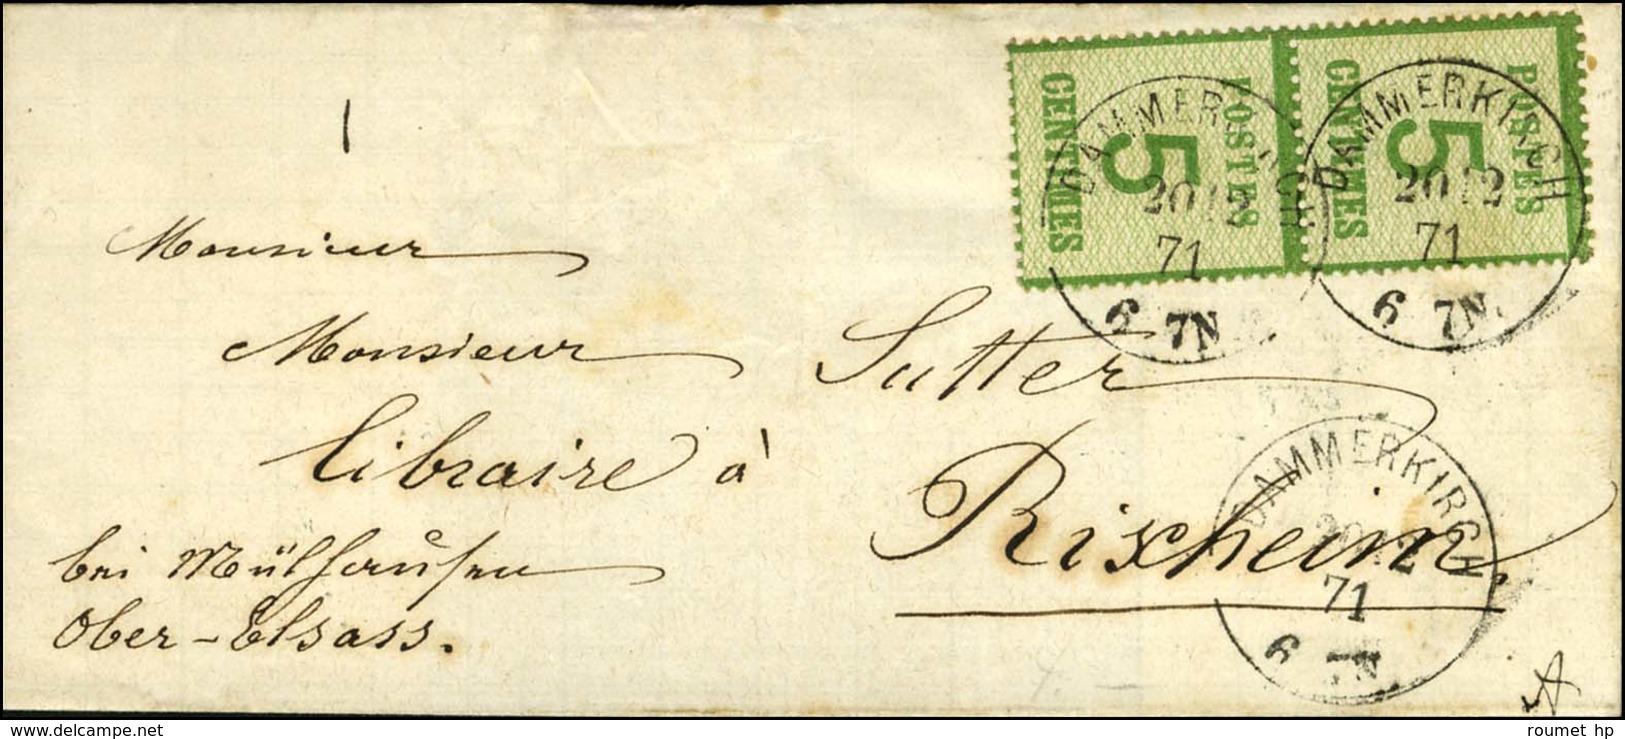 POSTES
5
CENTIMES
POSTES
5
CENTIMES
DAMMERKIRCH
20 12
71
6 7N
DAMMERKIRCH
20 12
71
6 7N.
1
Monsieur
Monsieur Sutter
libraire à Rixheim.
bei Mülhausen
Ober-Elsass.
DAMMERKIRCH
20 12
71
6 7N
roumet hp